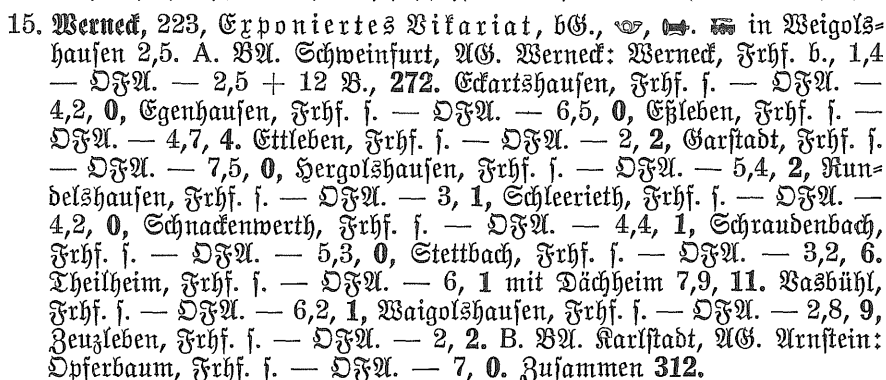 15. Werneck, 223, Exponiertes Vikariat, bG., in Weigols-
hausen 2,5. A. BA. Schweinfurt, AG. Werneck: Werneck, Frhf. b., 1,4
— OFA. — 2,5 + 12 B., 272. Eckartshausen, Frhf. s. — OFA. —
4,2, 0, Egenhausen, Frhf. s. — OFA. — 6,5, 0, Eßleben, Frhf. s. —
OFA. — 4,7, 4. Ettleben, Frhf. s. — OFA. — 2, 2, Garstadt, Frhf. s.
— OFA. — 7,5, 0, Hergolshausen, Frhf. s. — OFA. — 5,4, 2, Run-
delshausen, Frhf. s. — OFA. — 3, 1, Schleerieth, Frhf. s. — OFA. —
4,2, 0, Schnackenwerth, Frhf. s. — OFA. — 4,4, 1, Schraudenbach,
Frhf. s. — OFA. — 5,3, 0, Stettbach, Frhf. s. — OFA. — 3,2, 6.
Theilheim, Frhf. s. — OFA. — 6, 1 mit Dächheim 7,9, 11. Vasbühl,
Frhf. s. — OFA. — 6,2, 1, Waigolshausen, Frhf. s. — OFA. — 2,8, 9,
Zeuzleben, Frhf. s. — OFA. — 2, 2. B. BA. Karlstadt, AG. Arnstein:
Opferbaum, Frhf. s. — OFA. — 7, 0. Zusammen 312.